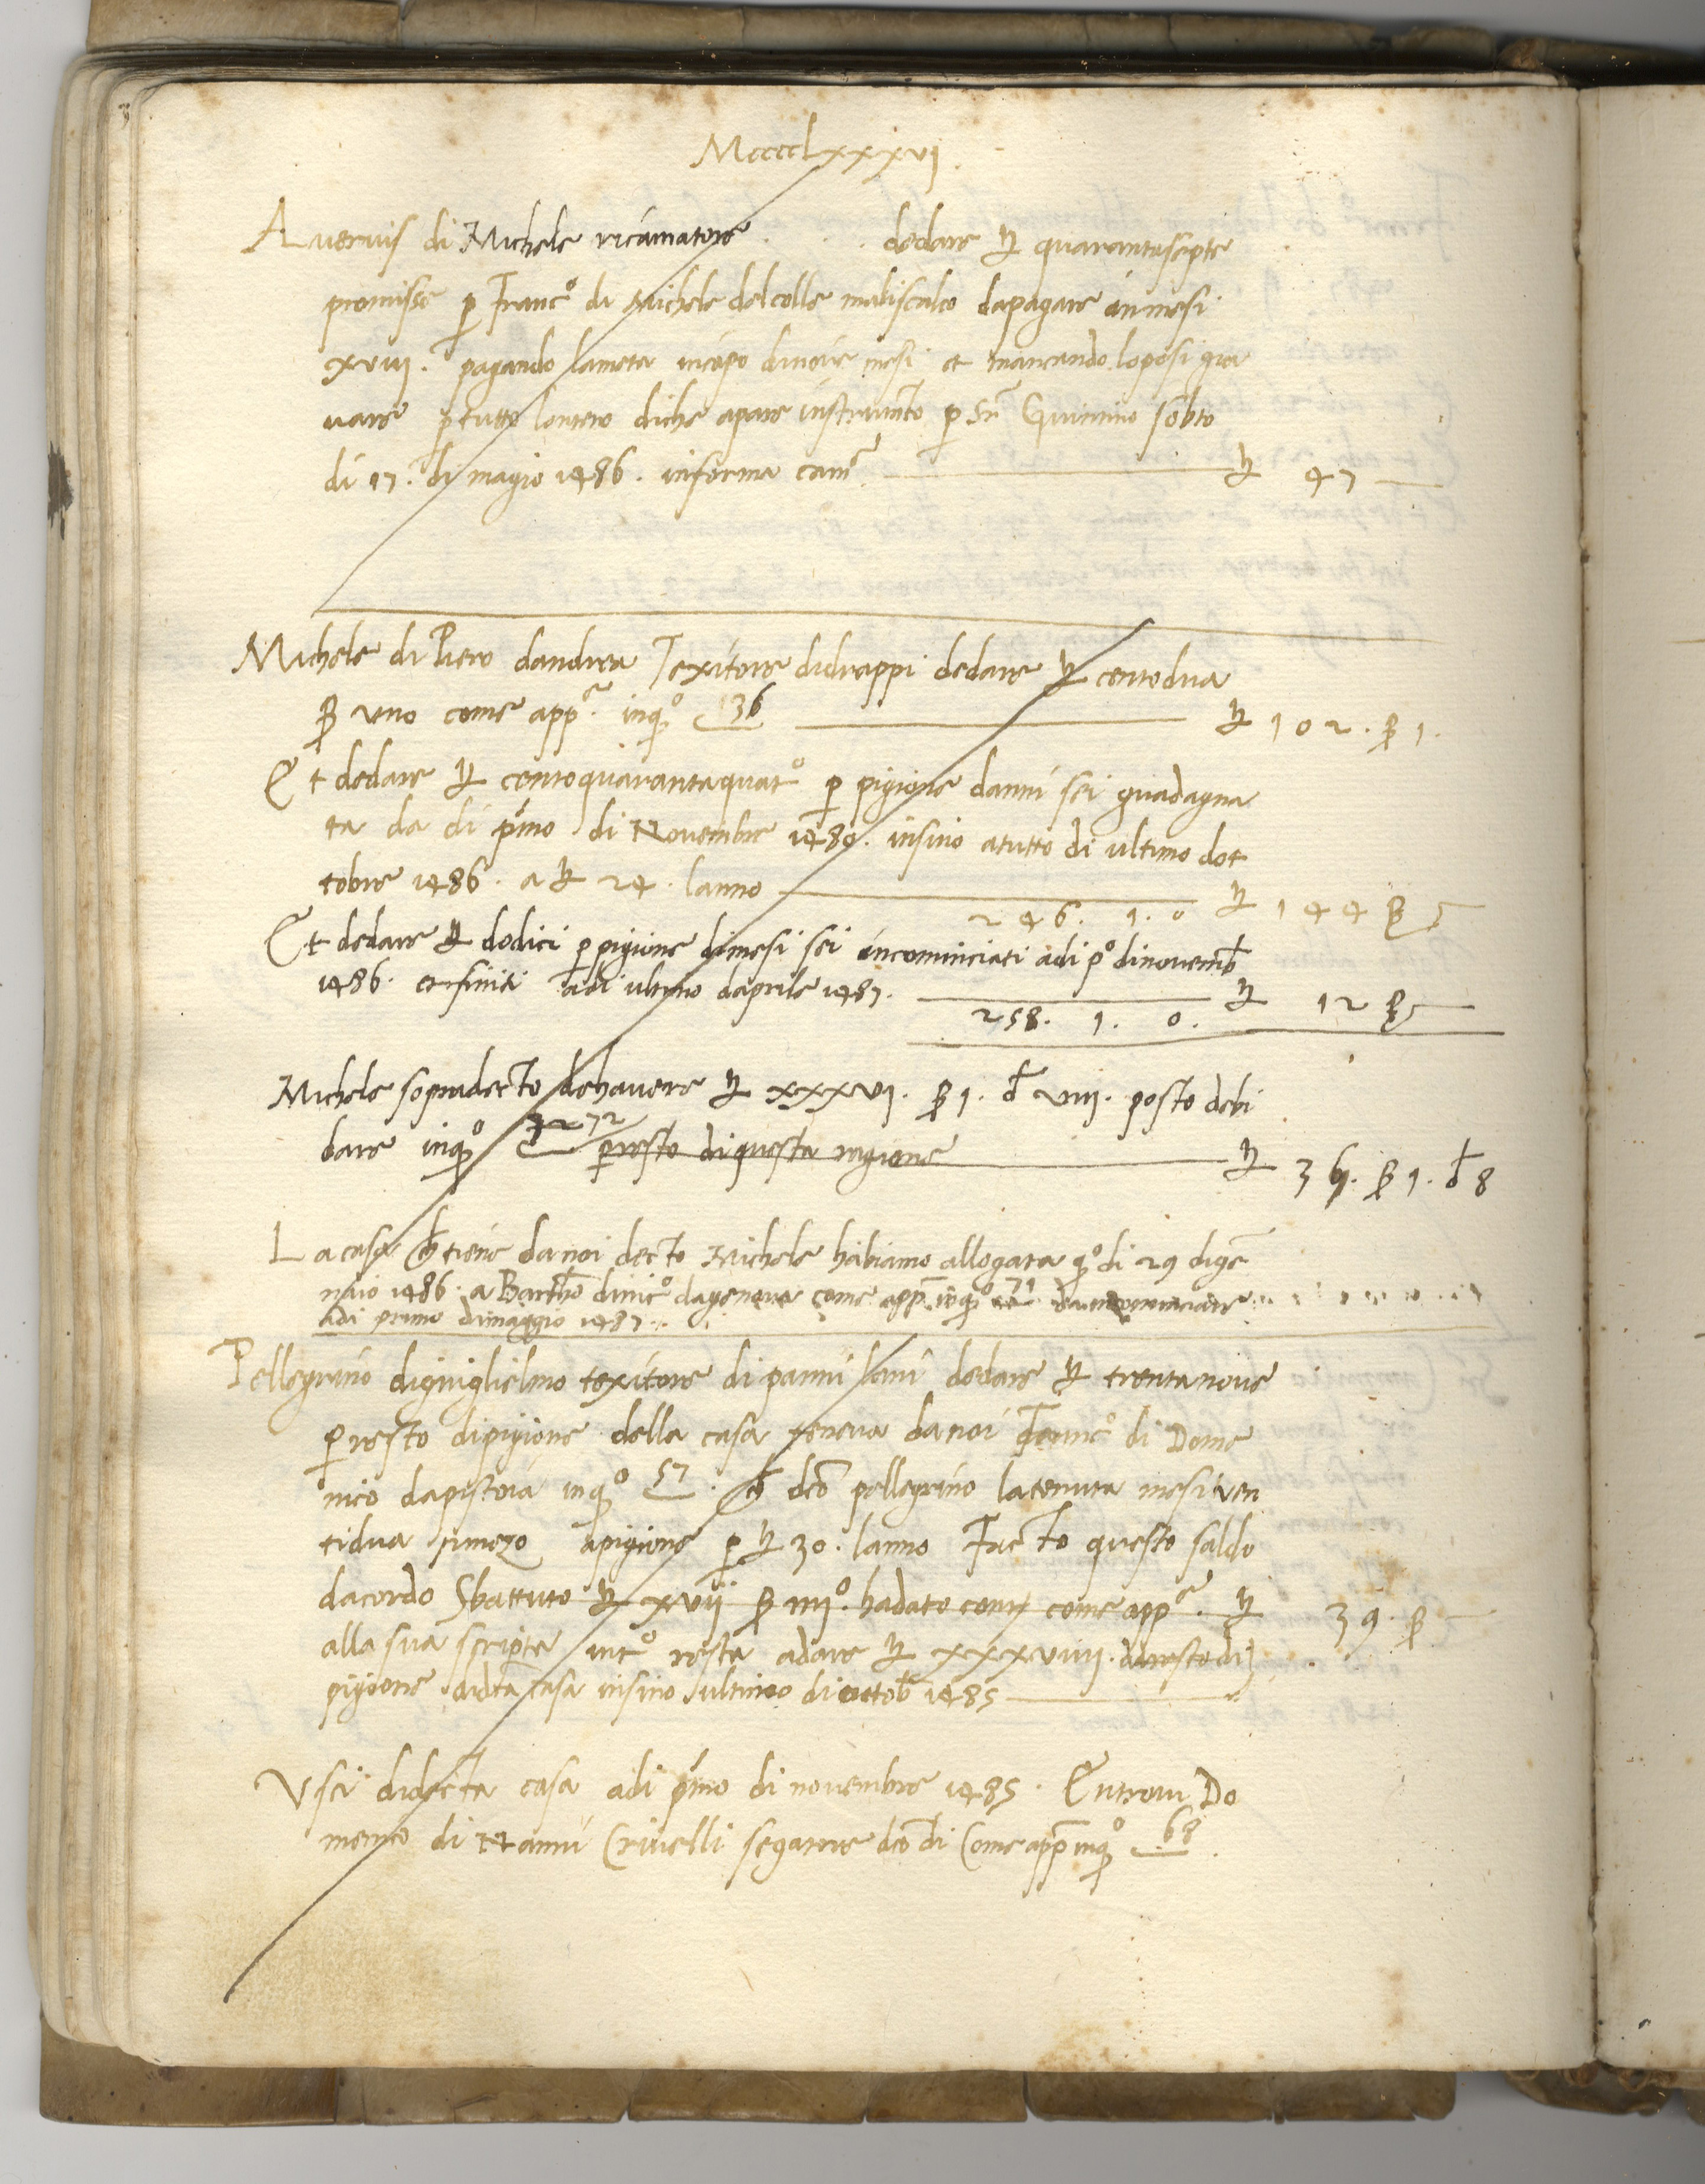 Mccccclxxxvj
Averuis di Michele ricamatore . . . dedare ℔ quarantasepte
promisse p Franc° di Michele delcolle maliscalco dapagare inmesi
xviij . pagando lameta incapo dinove mesi et mancando loposi gra
vare p tutto lontero diche apare instrumto p Sr Quirino sobto
di 17. di magio 1486. informa cam ℔ 47
Michele di Piero dandrea Texitore didrappi dedare ℔ centodua
β uno come app inqo 136 ℔ 102. β 1.
Et dedare ℔ centoquarantaquat° p pigione danni sei guadagna
ta da di pmo di Novembre 1480. insino atutto di ultimo dot
tobre 1486. a ℔ 24. lanno ℔ 144 β
246. 1. 0
Et dedare ℔ dodici p pigione dimesi sei incominciati adi p° dinovemb
1486. et finiti adi ultimo daprile 1487. ℔ 12 β
258. 1. 0.
Michele sopradecto dehavere ℔ xxxvj. β 1. d viij. posto debi
dare inqo 72 p resto di questa ragione ℔ 36. β 1. d 8
La casa ch tiene da noi decto Michele habiamo allogata qo di 29 dige
naio 1486. a Bartho dinic° dagenova come app inqo 71 da incominciare
adi primo dimaggio 1487.
Pellegrino diguiglielmo texitore di panni lani dedare ℔ trentanove
p resto dipigione della casa teneva da noi Franc° di Dome
nico dapistoia inqo 57. ch dco pellegrino latenuta mesi ven
tidua numezo apigione p ℔ 30. lanno Facto questo saldo
dacordo Sbattuto ℔ xvij β iiij° hadato conti come app. ℔ 39. β
alla sua scripta int° resta adare ℔ xxxviiij. diresto di
pigione didta casa insino ultimo di ottob 1485
Usci didecta casa adi pmo di novembre 1485. Entrovi Do
menico di Nanni Crivelli segatore dco di Come app inqo 68.